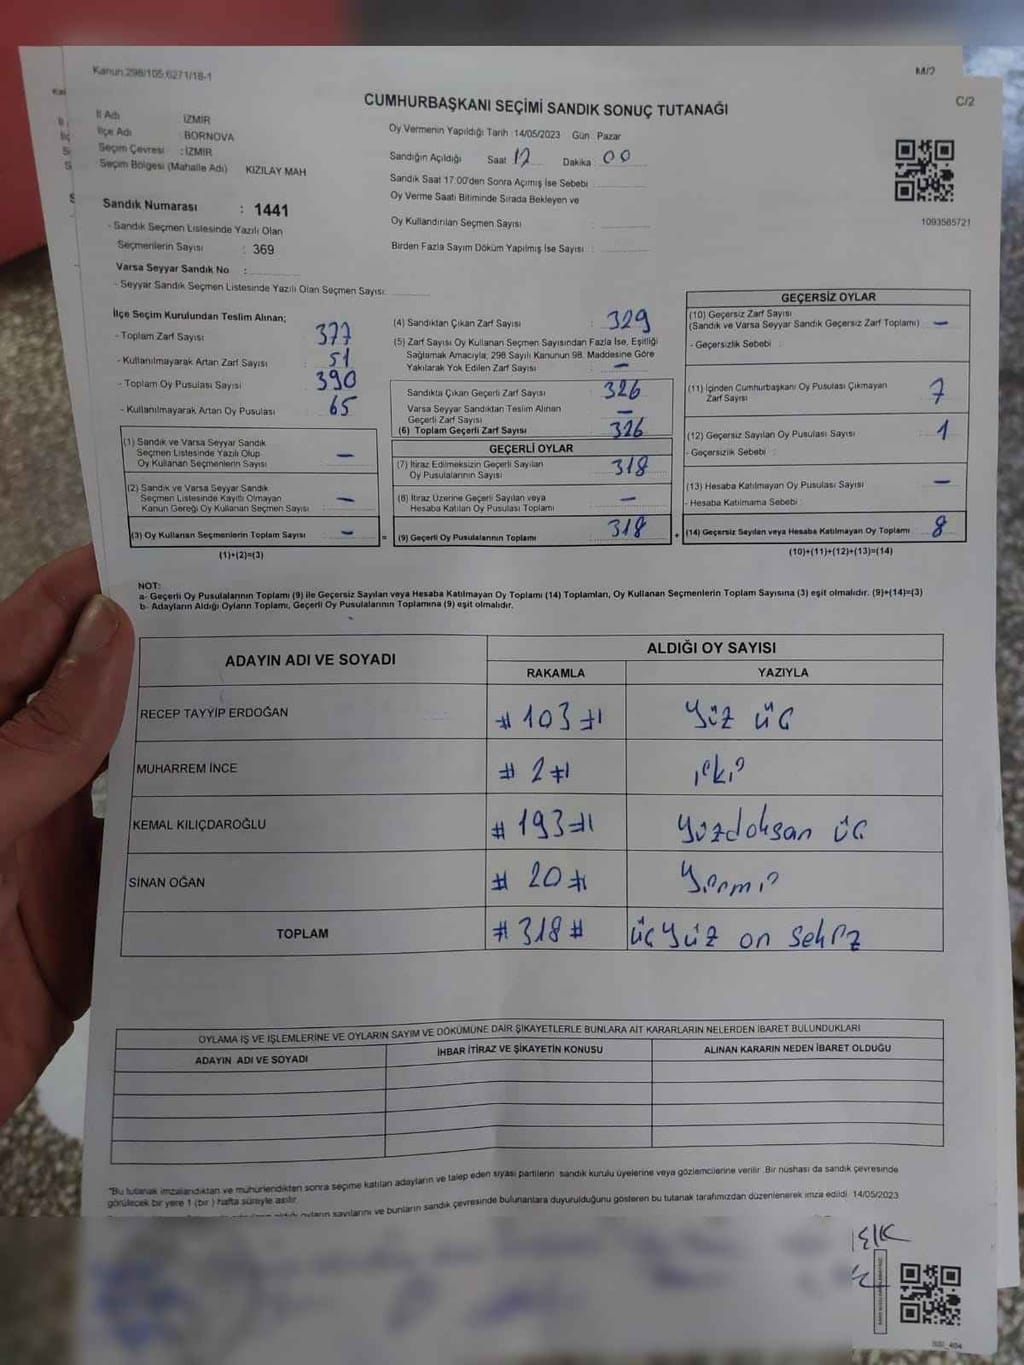 Kanun:298/105;6271/18-1
M/2
C/2
CUMHURBAŞKANI SEÇİMİ SANDIK SONUÇ TUTANAĞI
İl Adı İZMİR
İlçe Adı BORNOVA
Seçim Çevresi : İZMİR
Seçim Bölgesi (Mahalle Adı) KIZILAY MAH
Sandık Numarası : 1441
- Sandık Seçmen Listesinde Yazılı Olan
Seçmenlerin Sayısı : 369
Varsa Seyyar Sandık No :
- Seyyar Sandık Seçmen Listesinde Yazılı Olan Seçmen Sayısı:
Oy Vermenin Yapıldığı Tarih :14/05/2023 Gün : Pazar
Sandığın Açıldığı Saat 12 Dakika : 00
Sandık Saat 17:00'den Sonra Açımış İse Sebebi :
Oy Verme Saati Bitiminde Sırada Bekleyen ve
Oy Kullandırılan Seçmen Sayısı :
Birden Fazla Sayım Döküm Yapılmış İse Sayısı :
1093585721
İlçe Seçim Kurulundan Teslim Alınan;
- Toplam Zarf Sayısı : 377
- Kullanılmayarak Artan Zarf Sayısı : 51
- Toplam Oy Pusulası Sayısı : 390
- Kullanılmayarak Artan Oy Pusulası : 65
(1) Sandık ve Varsa Seyyar Sandık
Seçmen Listesinde Yazılı Olup
Oy Kullanan Seçmenlerin Sayısı : -
(2) Sandık ve Varsa Seyyar Sandık
Seçmen Listesinde Kayıtlı Olmayan
Kanun Gereği Oy Kullanan Seçmen Sayısı : -
(3) Oy Kullanan Seçmenlerin Toplam Sayısı : -
(1)+(2)=(3)
(4) Sandıktan Çıkan Zarf Sayısı : 329
(5) Zarf Sayısı Oy Kullanan Seçmen Sayısından Fazla İse, Eşitliği
Sağlamak Amacıyla; 298 Sayılı Kanunun 98. Maddesine Göre
Yakılarak Yok Edilen Zarf Sayısı : -
Sandıkta Çıkan Geçerli Zarf Sayısı : 326
Varsa Seyyar Sandıktan Teslim Alınan
Geçerli Zarf Sayısı : -
(6) Toplam Geçerli Zarf Sayısı : 326
GEÇERLİ OYLAR
(7) İtiraz Edilmeksizin Geçerli Sayılan
Oy Pusulalarının Sayısı : 318
(8) İtiraz Üzerine Geçerli Sayılan veya
Hesaba Katılan Oy Pusulası Toplamı : -
= (9) Geçerli Oy Pusulalarının Toplamı : 318
GEÇERSİZ OYLAR
(10) Geçersiz Zarf Sayısı
(Sandık ve Varsa Seyyar Sandık Geçersiz Zarf Toplamı) : -
- Geçersizlik Sebebi :
(11) İçinden Cumhurbaşkanı Oy Pusulası Çıkmayan
Zarf Sayısı : 7
(12) Geçersiz Sayılan Oy Pusulası Sayısı : 1
- Geçersizlik Sebebi :
(13) Hesaba Katılmayan Oy Pusulası Sayısı : -
- Hesaba Katılmama Sebebi :
+ (14) Geçersiz Sayılan veya Hesaba Katılmayan Oy Toplamı : 8
(10)+(11)+(12)+(13)=(14)
NOT:
a- Geçerli Oy Pusulalarının Toplamı (9) ile Geçersiz Sayılan veya Hesaba Katılmayan Oy Toplamı (14) Toplamları, Oy Kullanan Seçmenlerin Toplam Sayısına (3) eşit olmalıdır. (9)+(14)=(3)
b- Adayların Aldığı Oyların Toplamı, Geçerli Oy Pusulalarının Toplamına (9) eşit olmalıdır.
ADAYIN ADI VE SOYADI ALDIĞI OY SAYISI
RAKAMLA YAZIYLA
RECEP TAYYİP ERDOĞAN # 103 # Yüz üç
MUHARREM İNCE # 2 # iki
KEMAL KILIÇDAROĞLU # 193 # Yüzdoksan üç
SİNAN OĞAN # 20 # Yirmi
TOPLAM # 318 # üçyüz on sekiz
OYLAMA İŞ VE İŞLEMLERİNE VE OYLARIN SAYIM VE DÖKÜMÜNE DAİR ŞİKAYETLERLE BUNLARA AİT KARARLARIN NELERDEN İBARET BULUNDUKLARI
ADAYIN ADI VE SOYADI İHBAR İTİRAZ VE ŞİKAYETİN KONUSU ALINAN KARARIN NEDEN İBARET OLDUĞU
"Bu tutanak imzalandıktan ve mühürlendikten sonra seçime katılan adayların ve talep eden siyasi partilerin sandık kurulu üyelerine veya gözlemcilerine verilir. Bir nüshası da sandık çevresinde
görülecek bir yere 1 (bir ) hafta süreyle asılır.
oyların sayılarını ve bunların sandık çevresinde bulunanlara duyurulduğunu gösteren bu tutanak tarafımızdan düzenlenerek imza edildi. 14/05/2023